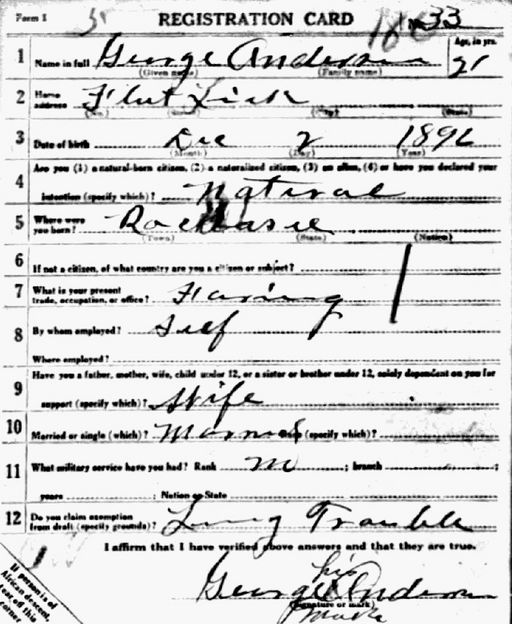 Form 1 REGISTRATION CARD 33
1 Name in full George Anderson Age, in yrs. 21
(Given name) (Family name)
2 Home address Flut Lick
(No.) (Street) (City) (State)
3 Date of birth Dec 2 1896
(Month) (Day) (Year)
4 Are you (1) a natural-born citizen, (2) a naturalized citizen, (3) an alien, (4) or have you declared your
intention (specify which)? Natural
5 Where were you born? Rockcasie
(Town) (State) (Nation)
6 If not a citizen, of what country are you a citizen or subject?
7 What is your present trade, occupation, or office? Faring
8 By whom employed? Self
Where employed?
9 Have you a father, mother, wife, child under 12, or a sister or brother under 12, solely dependent on you for
support (specify which)? Wife
10 Married or single (which)? Married Race (specify which)?
11 What military service have you had? Rank ; branch ;
years ; Nation or State
12 Do you claim exemption from draft (specify grounds)? Lung Trouble
I affirm that I have verified above answers and that they are true.
his
George Anderson
(Signature or mark)
mark
If person is of
African descent,
tear off this
corner